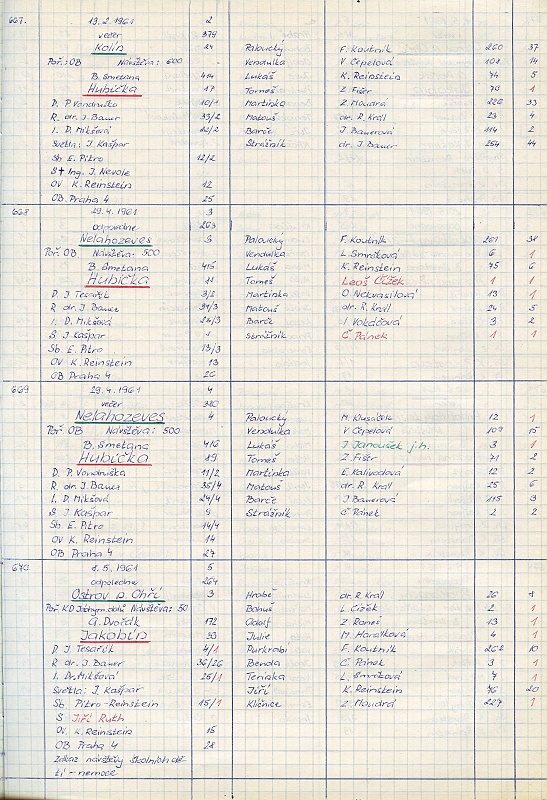 667. 19.2.1961 2
večer 379
Kolín 24 Palovický F. Koutník 260 37
Poř.: OB Návštěva: 600 Vendulka V. Čepelová 108 14
B. Smetana 414 Lukáš K. Reinstein 74 5
Hubička 17 Tomeš Z. Fišer 70 1
D. P. Vondruško 10/1 Martinka Z. Moudrá 226 33
R. dr. J. Bauer 33/2 Matouš dr. R. Král 23 4
I. D. Mikšová 22/2 Barče J. Bauerová 114 2
Světla: J. Kašpar Strážník dr. J. Bauer 254 44
Sb. E. Pitro 12/2
S† Ing. J. Nevole
OV K. Reinstein 12
OB. Praha 4 25
668 29.4.1961 3
odpoledne 263
Nelahozeves 3 Palovický F. Koutník 261 38
Poř. OB Návštěva: 500 Vendulka L. Smrčková 6 1
B. Smetana 415 Lukáš K. Reinstein 75 6
Hubička 18 Tomeš Leoš Čížek 1 1
D. J. Tesařík 3/2 Martinka O. Nekvasilová 13 1
R dr. J. Bauer 34/3 Matouš dr. R. Král 24 5
I. D. Mikšová 23/3 Barče I. Vokáčová 3 2
S J. Kašpar Strážník Č. Pánek 1 1
Sb. E. Pitro 13/3
OV K. Reinstein 13
OB Praha 4 26
669 29.4.1961 4
večer 380
Nelahozeves 4 Palovický M. Klusáček 12 1
Poř. OB Návštěva: 500 Vendulka V. Čepelová 109 15
B. Smetana 416 Lukáš J. Janoušek j.h. 3 1
Hubička 19 Tomeš Z. Fišer 71 2
D. P. Vondruška 11/2 Martinka E. Kalivodová 12 2
R dr. J. Bauer 35/4 Matouš dr. R. Král 25 6
I. D. Mikšová 24/4 Barče J. Bauerová 115 3
S J. Kašpar Strážník Č. Pánek 2 2
Sb. E. Pitro 14/4
OV K. Reinstein 14
OB Praha 4 27
670. 1.5.1961 5
odpoledne 264
Ostrov n. Ohří 3 Hrabě dr. R. Král 26 7
Poř. KD Jáchym. dolů Návštěva: 50 Bohuš L. Čížek 2 1
A. Dvořák 172 Adolf Z. Rameš 13 1
Jakobín 33 Julie M. Horálková 4 1
D J. Tesařík 4/1 Purkrabí F. Koutník 262 10
R dr. J. Bauer 36/26 Benda Č. Pánek 3 1
I. Dr. Mikšová 25/1 Terinka L. Smrčková 7 1
Světla: J. Kašpar Jiří K. Reinstein 76 20
Sb Pitro - Reinstein 15/1 Klíčnice Z. Moudrá 227 1
S Jiří Ruth
OV. K. Reinstein 15
OB Praha 4 28
zákaz návštěvy školních dě-
tí - nemoce